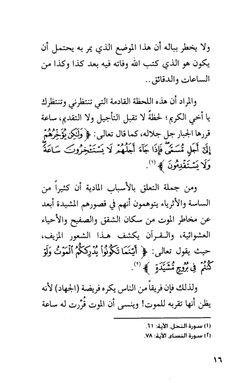 ولا يخطر بباله أن هذا الموضع الذي يمر به يحتمل أن
يكون هو الذي كتب الله وفاته فيه بعد كذا وكذا من
الساعات والدقائق..
والمراد أن هذه اللحظة القادمة التي تنتظرني وتنتظرك
يا أخي الكريم؛ لحظة لا تقبل التأجيل ولا التقديم، ساعة
قررها الجبار جل جلاله، كما قال تعالى: ﴿وَلَكِن يُؤَخِّرُهُمْ
إِلَى أَجَلٍ مُّسَمًّى فَإِذَا جَاءَ أَجَلُهُمْ لَا يَسْتَأْخِرُونَ سَاعَةً
وَلَا يَسْتَقْدِمُونَ﴾ (١).
ومن جملة التعلق بالأسباب المادية أن كثيراً من
الساسة والأثرياء يتوهمون أنهم في قصورهم المشيدة أبعد
عن مخاطر الموت من سكان الشقق والصفيح والأحياء
العشوائية، والقرآن يكشف هذا الشعور المزيف،
حيث يقول تعالى: ﴿أَيْنَمَا تَكُونُوا يُدْرِككُّمُ الْمَوْتُ وَلَوْ
كُنتُمْ فِي بُرُوجٍ مُّشَيَّدَةٍ﴾ (٢).
ولذلك فإن فريقاً من الناس يكره فريضة (الجهاد) لأنه
يظن أنها تقربه للموت! وينسى أن الموت قُررت له ساعة
(١) سورة النحل، الآية: ٦١.
(٢) سورة النساء، الآية: ٧٨.
١٦